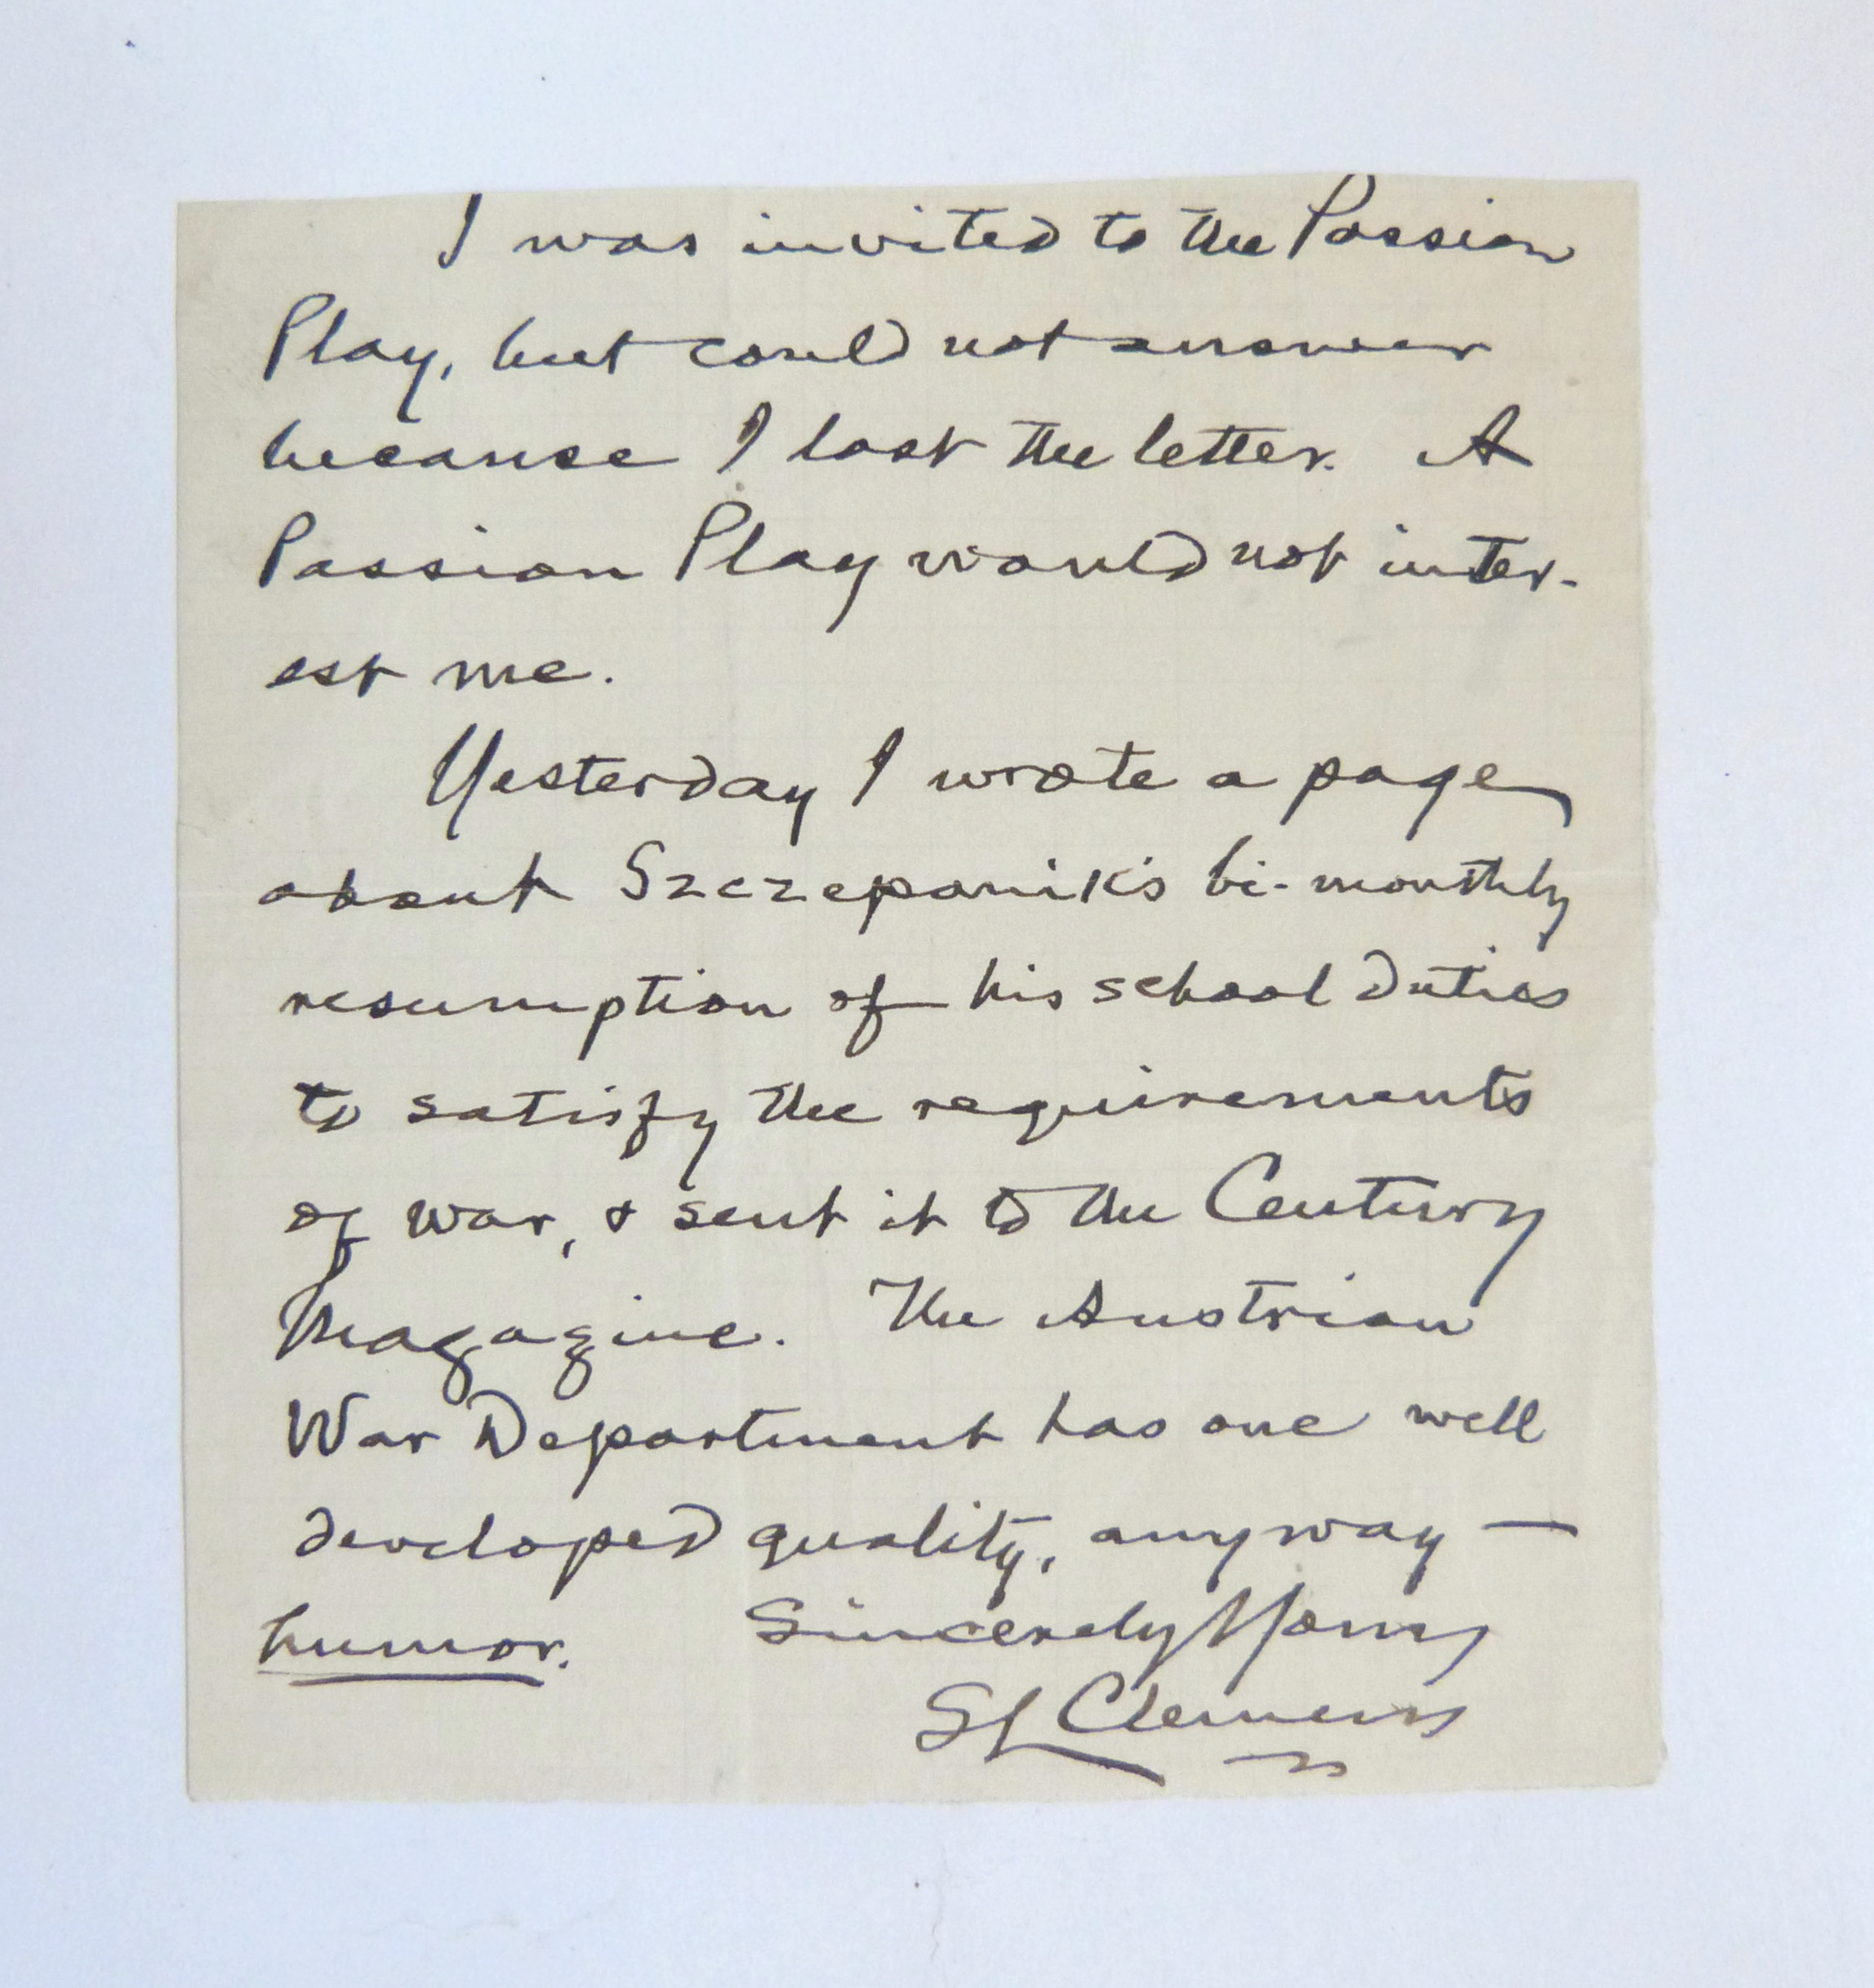 I was invited to the Passion
Play, but could not answer
because I lost the letter. A
Passion Play would not inter-
est me.
Yesterday I wrote a page
about Szczepanik's bi-monthly
resumption of his school duties
to satisfy the requirements
of war, & sent it to the Century
Magazine. The Austrian
War Department has one well
developed quality, anyway —
humor. Sincerely Yours
SL Clemens